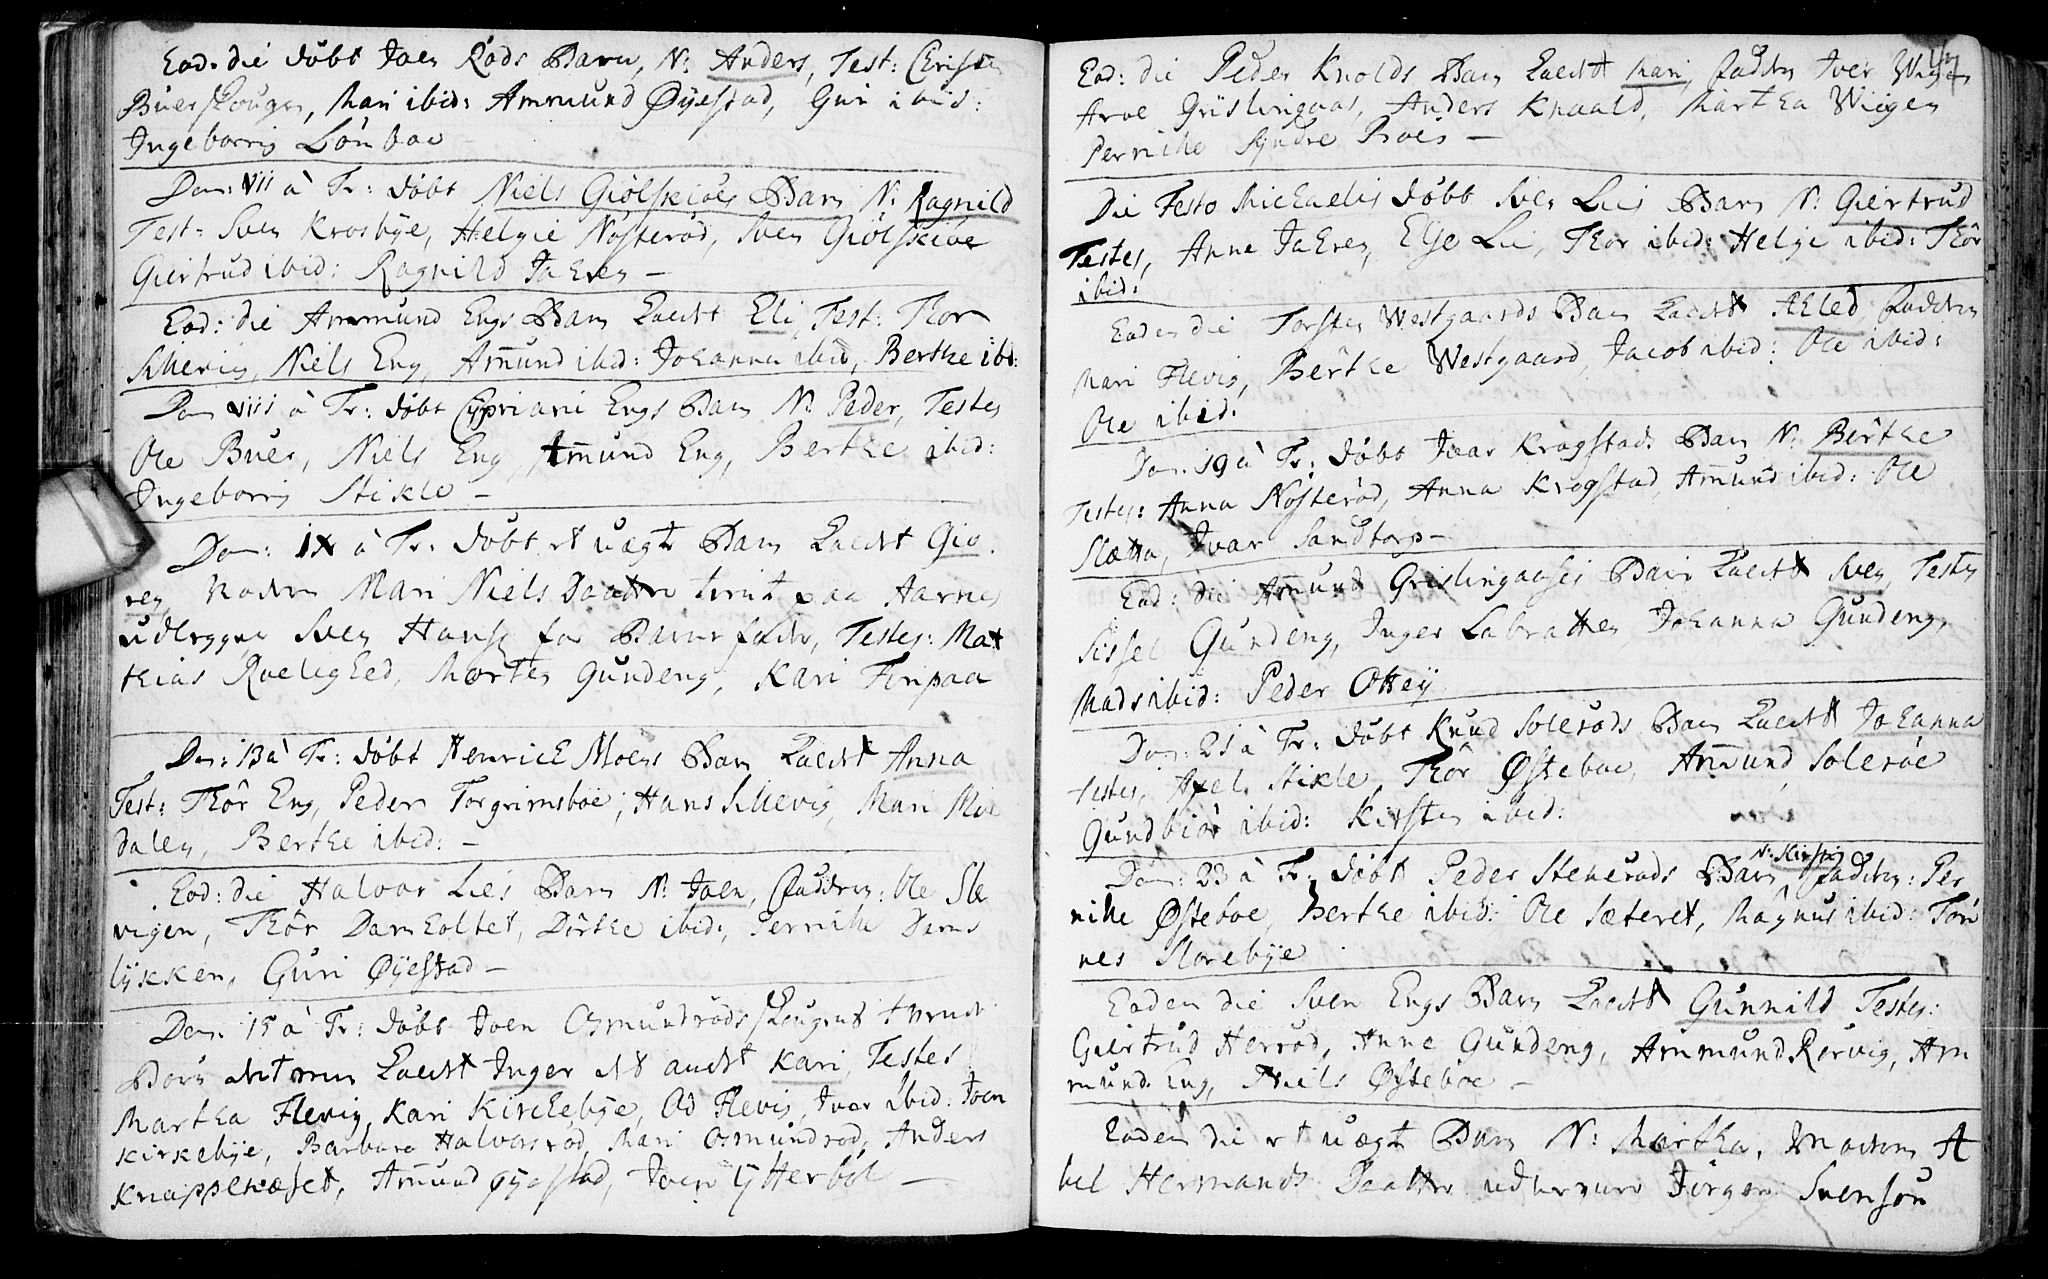 Eod: die döbt Joen Röds Barn, N: Anders, Test: Christen
Buerskougen, Mari ibid: Ammund Øyestad, Guri ibid:
Ingeborrig Lönboe
Dom: VII à Tr: döbt Niels Giölsiöes Barn N: Ragnild
Test: Sven Krosbÿe, Helgie Nösteröd, Sven Giölsiöe
Giertrud ibid: Ragnild Jahren –
Eod: die Ammund Engs Barn kaldt Eli, Test: Thor
Schevig, Niels Eng, Amund ibid: Johanna ibid, Berthe ibd:
Dom VIII à Tr: döbt Cypriani Engs Barn N: Peder, Testes
Ole Buer, Niels Eng, Amund Eng, Berthe ibid:
Ingeborrig Stikle –
Dom: IX à Tr: döbt et uægte Barn kaldt Gio
ren, Moderen Mari Niels Daatter tient paa Aarnes
udlegger Sven Hans for Barne fader, Testes: Mat
thias Roelighed, Morten Gundeng, Kari Finpaa
Dom: 13 à Tr: döbt Henrich Moens Barn kaldt Anna
Test: Thör Eng, Peder Torgrimsboe, Hans Schevig, Mari Moe
dalen, Berthe ibid: –
Eod: die Halvor Lies Barn N: Joen, Faddere: Ole Sle
vigen, Thör Damholtet, Dörthe ibid:, Pernille Dams
lÿkken, Guri Øÿestad –
Dom: 15 à Tr: döbt Joen Osmundröds skougens tvende
Börn det eene kaldt Inger det andet Kari, Testes
Martha Flevig, Kari Kirckebÿe, Od Flevig, Ivar ibid: Joen
Kirkebÿe, Barbara Halvorsröd, Mari Osmundröd, Anders
Knappelsæset, Amund Øÿestad, Joen Ytterböe –
Eod: die Peder Knolds Barn kaldt Mari, Fadder Iver Wigen
Arve Grislingaas, Anders Knaald, Martha Wiigen
Pernille Syndre Boeis –
Die Festo Michaelis döbt Sven Lies Barn N: Giertrud
Testes, Anne Jahren, Else Lie, Thor ibid: Helge ibid: Thör
ibid:
Eodem die Torsten Westgaards Barn kaldt Aled Faddere
Mari Flevig, Berthe Westgaard, Jacob ibid: Ole ibid:
Ole ibid:
Dom. 19 à Tr: döbt Ivar Krogstads Barn N: Berthe
Testes: Anna Nösteröd, Anna Krogstad, Amund ibid: Ole
Slætta, Ivar Sandtorp –
Eod: die Amund Grislingaases Barn kaldt Sven Testes
Sissel Gundeng, Inger Labratten, Johanna Gundeng,
Mads ibid: Peder Otteÿ
Dom: 21 à Tr: döbt Knud Soleröds Barn kaldt Johanna
Testes, Axel Stikle, Thör Østeboe, Amund Soleröe
Gundbiör ibid: Kirsten ibid:
N: Kirsti
Dom: 23 à Tr: döbt Peder Steneröds Barn Faddere: Per
nille Østeboe, Berthe ibid: Ole Sæteret, Magnus ibid: Tön
nes Slorebÿe
Eodem die Sven Engs Barn kaldt Gunnild Testes:
Giertrud Herröd, Anne Gundeng, Ammund Rörvig, Am
mund Eng, Niels Østeboe –
Eodem die et uægte Barn N: Martha, Moderen A
bel Hermands Daatter udlegger Jörgen Svensön